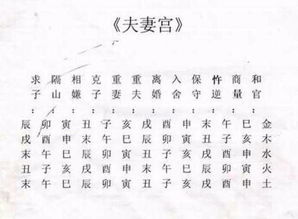 《夫妻宫》
金木水火土
和官：巳亥申寅申
商量：午子酉卯酉
忤逆：未丑戌辰戌
保守：申寅亥巳亥
入舍：酉卯子午子
离婚：戌辰丑未丑
重夫：亥巳寅申寅
重妻：子午卯酉卯
克子：丑未辰戌辰
相嫌：寅申巳亥巳
隔山：卯酉午子午
求子：辰戌未丑未